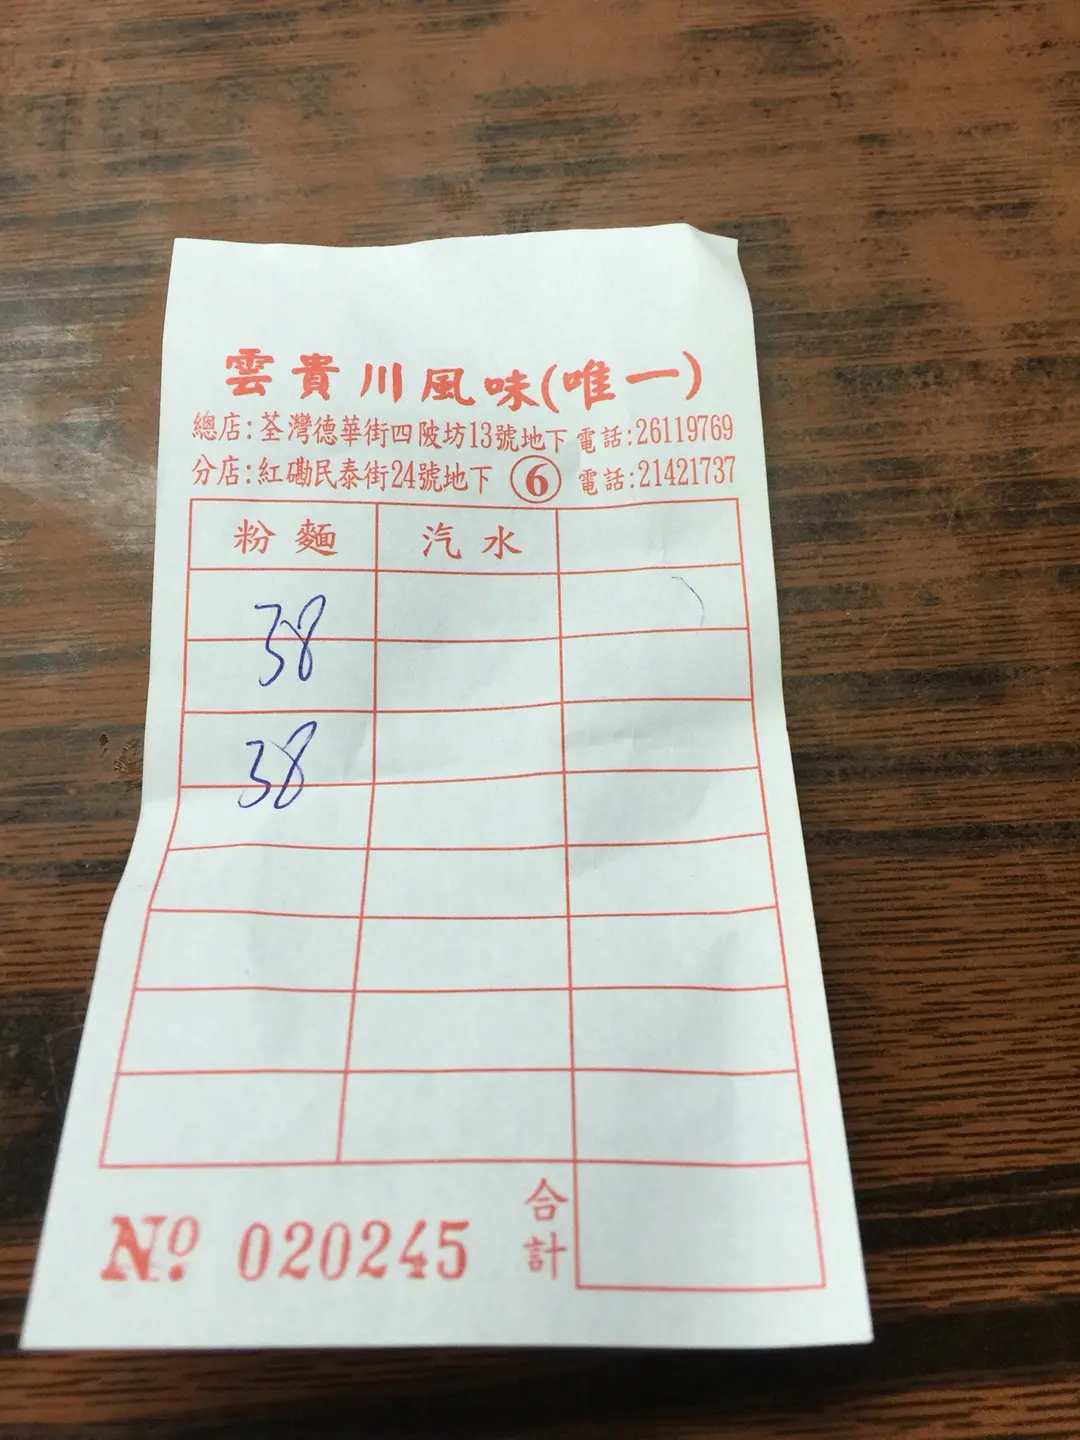 雲貴川風味(唯一)
總店:荃灣德華街四陂坊13號地下 電話:26119769
分店:紅磡民泰街24號地下 ⑥ 電話:21421737
粉麵 汽水
38
38
合計
Nº 020245